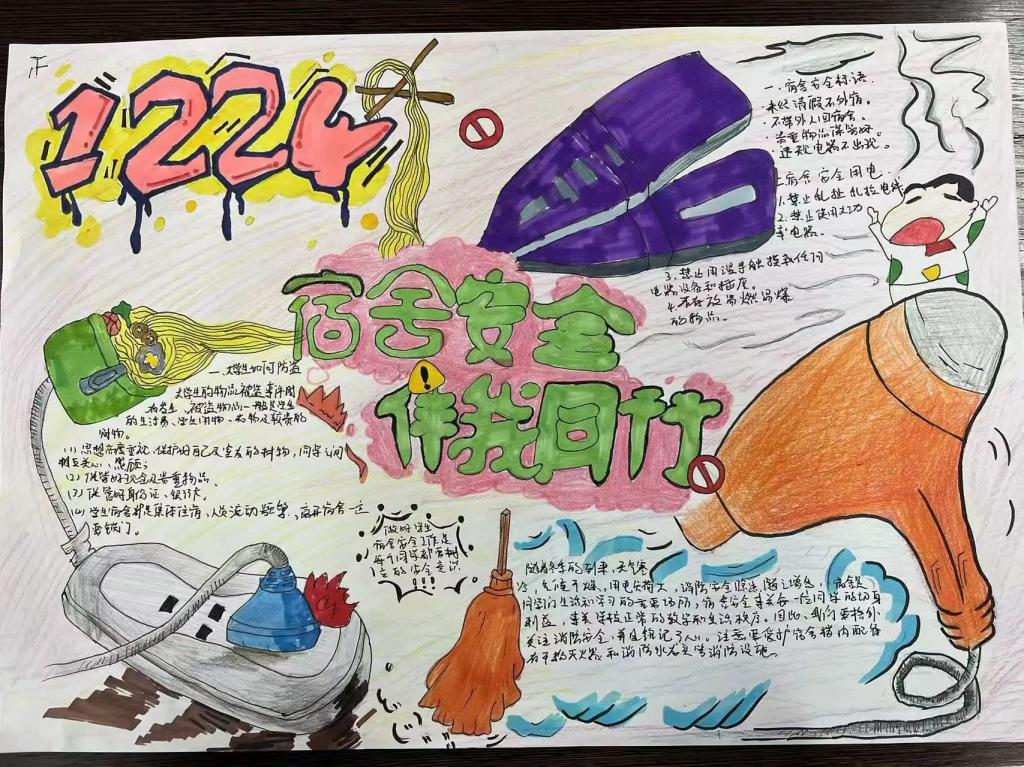 正
1224
宿舍安全
伴我同行
一、宿舍安全标语.
·未经请假不外宿。
·不带外人回宿舍。
·贵重物品保管好。
·违规电器不出现。
二宿舍安全用电.
1.禁止乱拉乱接电线
2.禁止使用大功
率电器。
3.禁止用湿手触摸和任何
电器设备和插座。
4.不存放易燃易爆
的物品。
一、大学生如何防盗
大学生的物品被盗事件时
有发生、被盗物品一般是学生
的生活费、学生用物、衣物及较贵的
财物。
(1)思想高度重视,保护好自己及室友的财物,同学之间
相互关心、照顾;
(2)保管好现金及贵重物品、
(3)保管好身份证、银行卡。
(4)学生宿舍都是集体住宿、人员流动频繁、离开宿舍一定
要锁门。
做好学生
宿舍安全工作是
每个同学都要树
立的安全意识
!!!
随着冬季的到来,天气寒
冷,气候干燥、用电负荷大,消防安全隐患随之增多,宿舍是
同学们生活和学习的重要场所,宿舍安全事关每一位同学的切身
利益,事关学校正常的教学和生活秩序。因此,我们要格外
关注消防安全,并且铭记于心。注意要爱护宿舍楼内配备
有干粉灭火器和消防水龙头等消防设施。